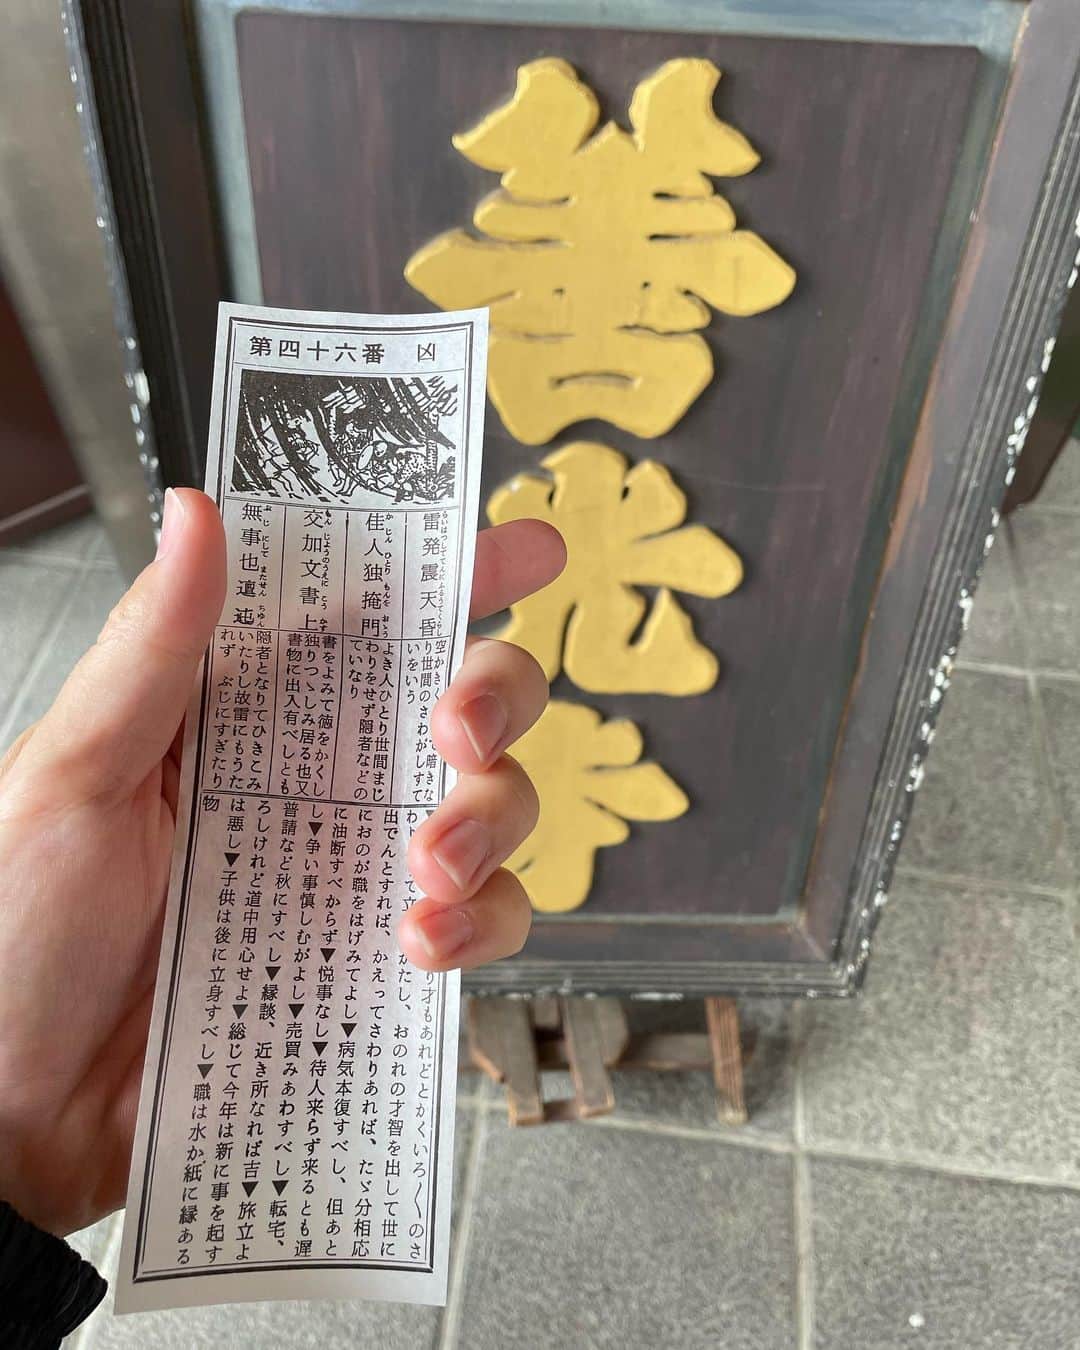 善光寺
第四十六番 凶
雷発震天昏
らいはつしててんにふるうてくらし
佳人独掩門
かじんひとりもんをおゝう
交加文書上
もんじようのうえにこうかす
無事也邅迍
ぶじにしてまたせんちゆん
空かきく て暗きな
り世間のさわがしすて
いをいう
よき人ひとり世間まじ
わりをせず隠者などの
ていなり
書をよみて徳をかくし
独りつゝしみ居る也又
書物に出入有べしとも
隠者となりてひきこみ
いたりし故雷にもうた
れず ぶじにすぎたり
▼ り才もあれどとかくいろ〱のさ
わ て立 がたし、おのれの才智を出して世に
出でんとすれば、かえってさわりあれば、たゞ分相応
におのが職をはげみてよし▼病気本復すべし、但あと
に油断すべからず▼悦事なし▼待人来らず来るとも遅
し▼争い事慎しむがよし▼売買みあわすべし▼転宅、
普請など秋にすべし▼縁談、近き所なれば吉▼旅立よ
ろしけれど道中用心せよ▼総じて今年は新に事を起す
は悪し▼子供は後に立身すべし▼職は水か紙に縁ある
物